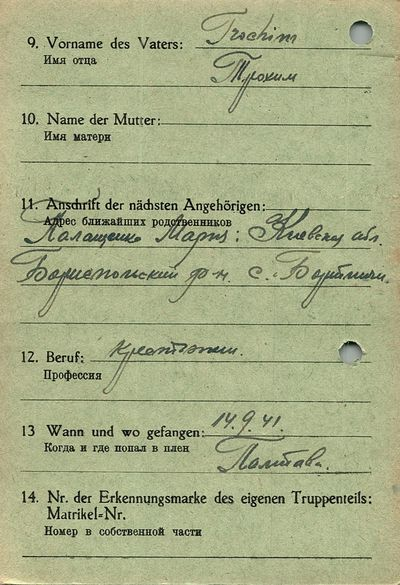 9. Vorname des Vaters: Trochim
Имя отца
Трохим
10. Name der Mutter:
Имя матери
11. Anschrift der nächsten Angehörigen:
Адрес ближайших родственников
Мария: Киевская обл.
Бориспольский р-н. с.
12. Beruf: крестьянин.
Профессия
13 Wann und wo gefangen: 14.9.41.
Когда и где попал в плен
Полтава.
14. Nr. der Erkennungsmarke des eigenen Truppenteils:
Matrikel=Nr.
Номер в собственной части